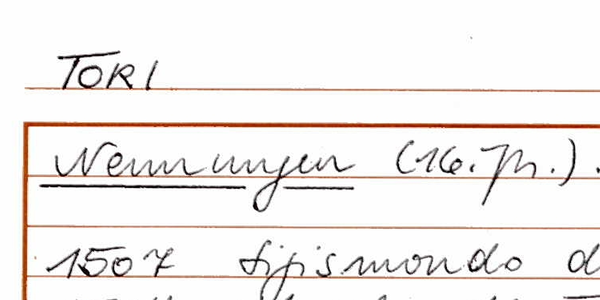 TORI
Nennungen (16. Jh.).
1507 Sigismondo d